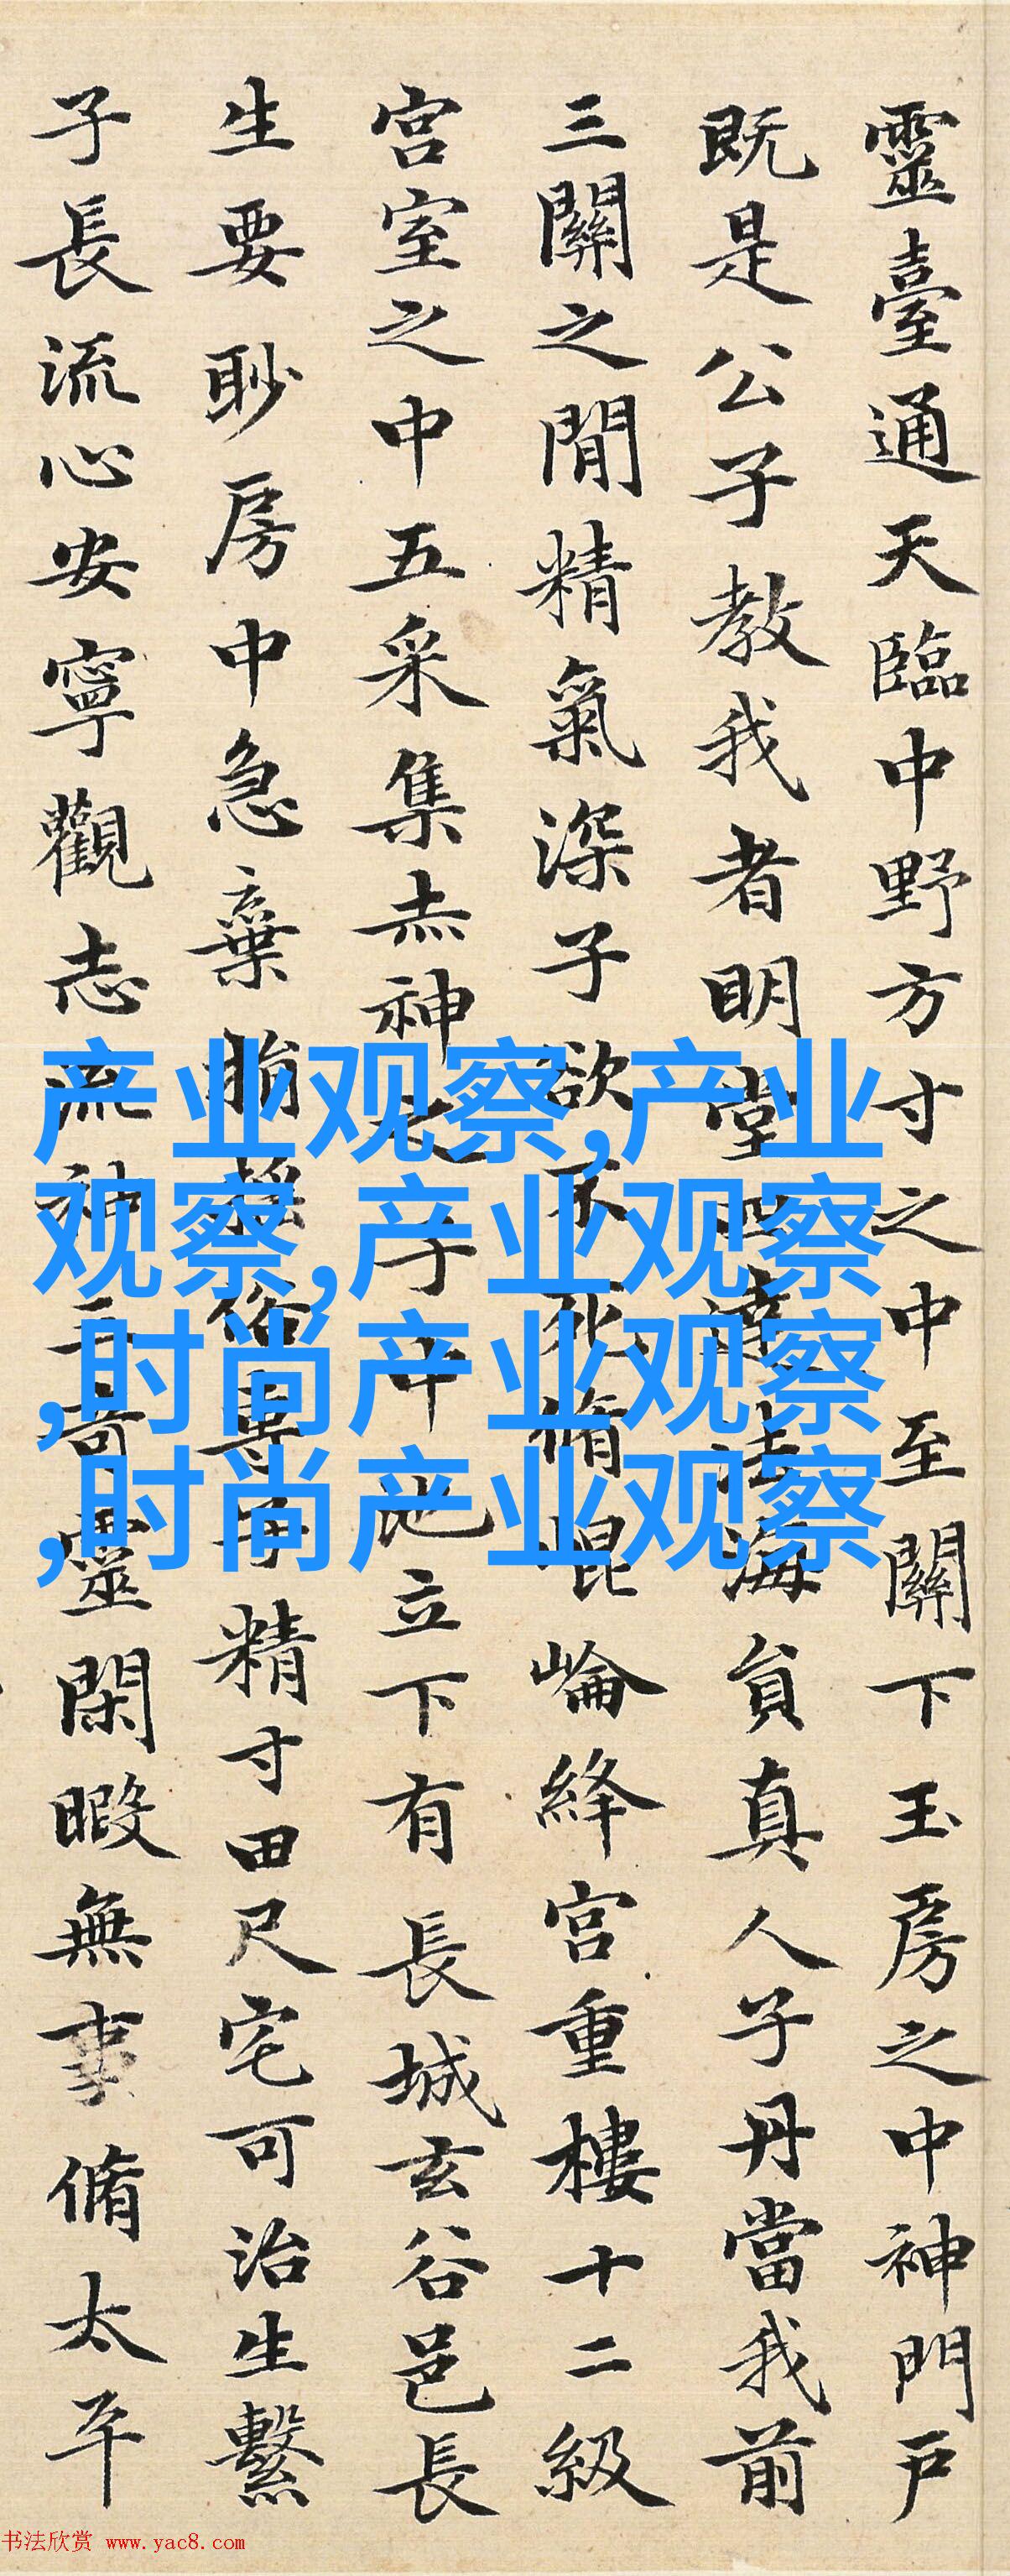 靈臺通天臨中野方寸之中至關下玉房之中神門戶
既是公子教我者明堂四達法海員真人子丹當我前
三關之閒精氣深子欲不死脩崐崘絳宮重樓十二級
宮室之中五采集赤神之子中池立下有長城玄谷邑長
生要眇房中急棄搖俗專子精寸田尺宅可治生繫
子長流心安寧觀志流神三奇靈閑暇無事脩太平
产业观察,产业
观察,产业观察
,时尚产业观察
,时尚产业观察
书法欣赏 www.yac8.com